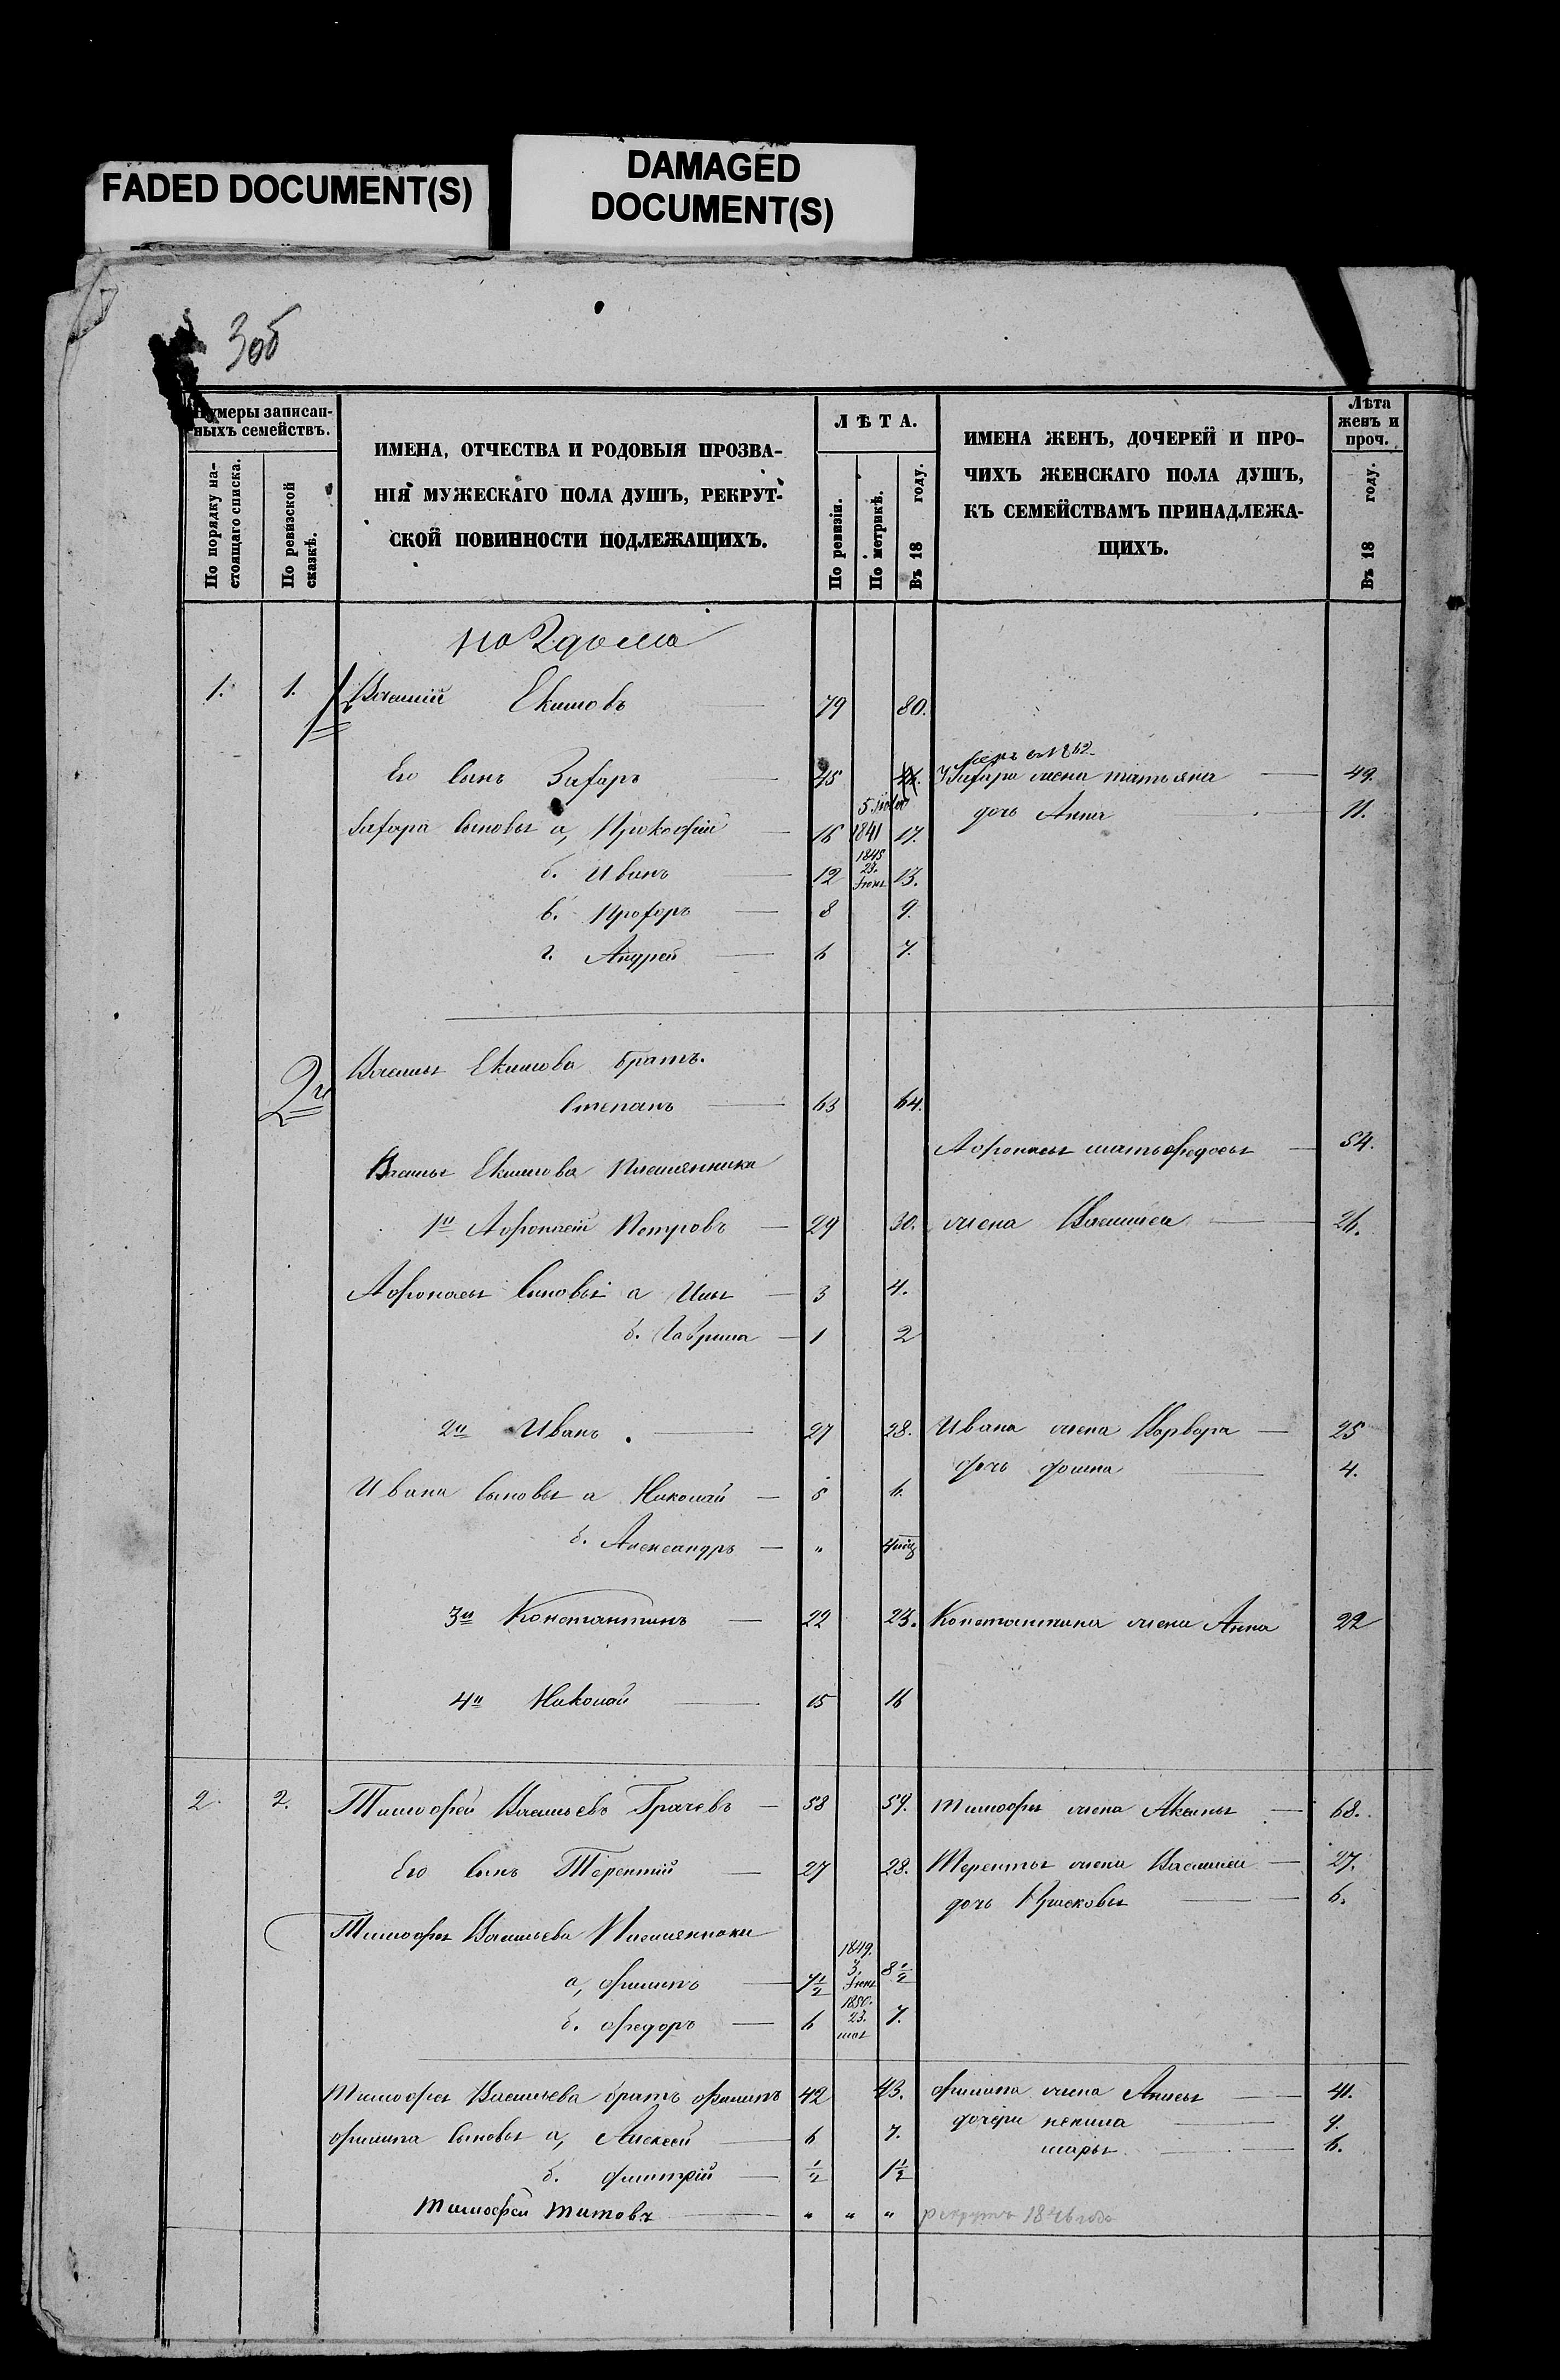 FADED DOCUMENT(S)
DAMAGED
DOCUMENT(S)
3об
Нумеры записан-
ныхъ семействъ.
По порядку на-
стоящаго списка.
По ревизской
сказкѣ.
ИМЕНА, ОТЧЕСТВА И РОДОВЫЯ ПРОЗВА-
НІЯ МУЖЕСКАГО ПОЛА ДУШЪ, РЕКРУТ-
СКОЙ ПОВИННОСТИ ПОДЛЕЖАЩИХЪ.
ЛѢТА.
По ревизіи.
По метрикѣ.
Въ 18 году.
ИМЕНА ЖЕНЪ, ДОЧЕРЕЙ И ПРО-
ЧИХЪ ЖЕНСКАГО ПОЛА ДУШЪ,
КЪ СЕМЕЙСТВАМЪ ПРИНАДЛЕЖА-
ЩИХЪ.
Лѣта
женъ и
проч.
Въ 18 году.
на 2 дома
1. 1. Василій Екимовъ 79 80.
Его сынъ Захаръ 45 Захара жена татьяна 49.
дочь Анна 11.
Захара сыновья а, Прокофій 16 1841 17.
б. Иванъ 12 1845 23. Іюня 13.
в. Прохоръ 8 9.
г. Андрей 6 7.
2й Василья Екимова братъ.
Степанъ 63 64.
Афонасья мать федосья 54.
Василья Екимова Племянники
1й Афонасій Петровъ 29 30. жена Василиса 26.
Афонасья сыновья а Илья 3 4.
б. Гаврила 1 2
2й Иванъ. 27 28. Ивана жена Варвара 25
дочь домна 4.
Ивана сыновья а Николай 5 6.
б. Александръ "
3й Константинъ 22 23. Константина жена Анна 22
4й Николай 15 16
2. 2. Тимофей Васильевъ Грачевъ 58 59. тимофея жена Аксинья 68.
Его сынъ Терентій 27 28. Терентья жена Василиса 27.
дочь Прасковья 6.
Тимофея Васильева Племянники
а, филипъ 7½ 1849. 3. Іюня 8½
б. федоръ 6 1850. 23. мая 7.
тимофея Васильева братъ филипъ 42 43. филипа жена Анисья 41.
дочери ненила 9.
марья 6.
филипа сыновья а, Алексей 6 7.
б. дмитрій ½ 1½
тимофей титовъ " " " рекрутъ 1846 года